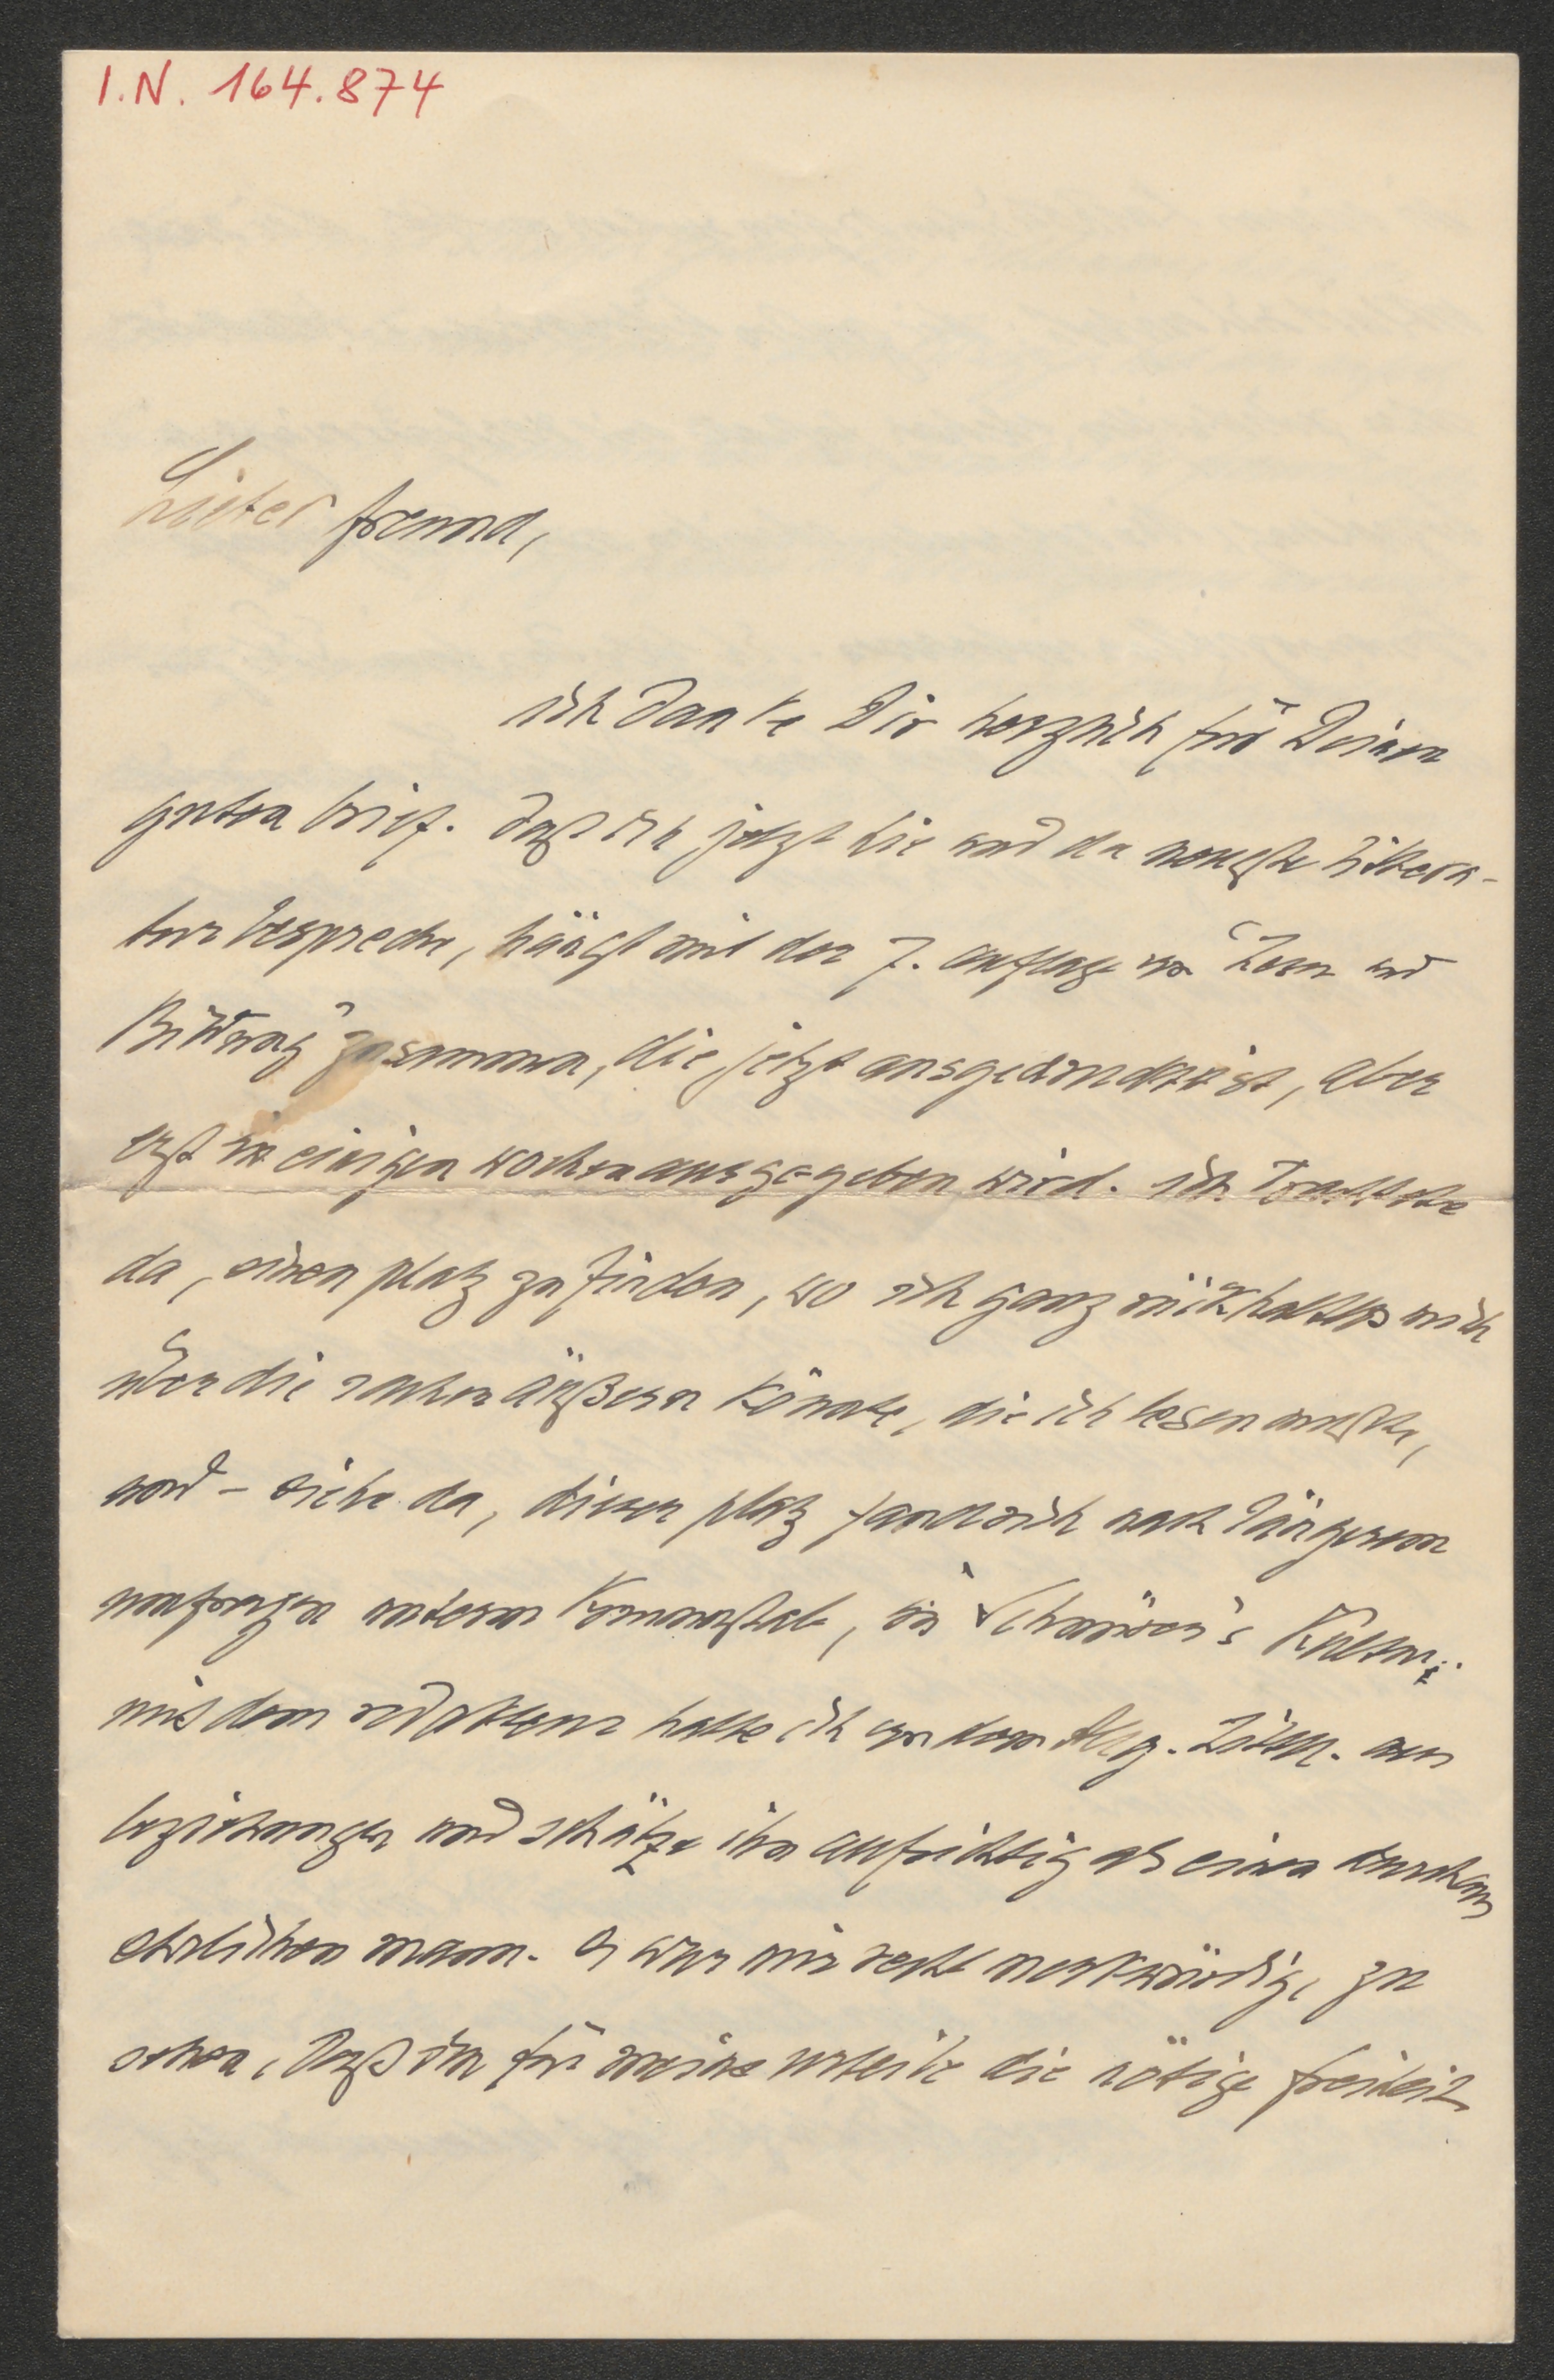 I.N. 164.874
Lieber freund,
ich danke Dir herzlich für Deinen
guten brief. daß ich jetzt hie und da neueste littera-
tur bespreche, hängt mit der 7. auflage von "Lesen und
Bildung" zusammen, die jetzt ausgedruckt ist, aber
erst in einigen wochen ausgegeben wird. ich trachtete
da, einen platz zu finden, wo ich ganz rückhaltlos mich
über die sachen äußern könnte, die ich lesen mußte,
und – siehe da, dieser platz fand sich nach längerem
umfragen unterm Krummstab, in Schnürer's Kultur;
mit dem redakteur hatte ich von dem Allg. Litbl. aus
beziehungen und schätze ihn aufrichtig als einen durchaus
ehrlichen mann. es war mir recht merkwürdig, zu
sehen, daß ich für meine urteile die nötige freiheit